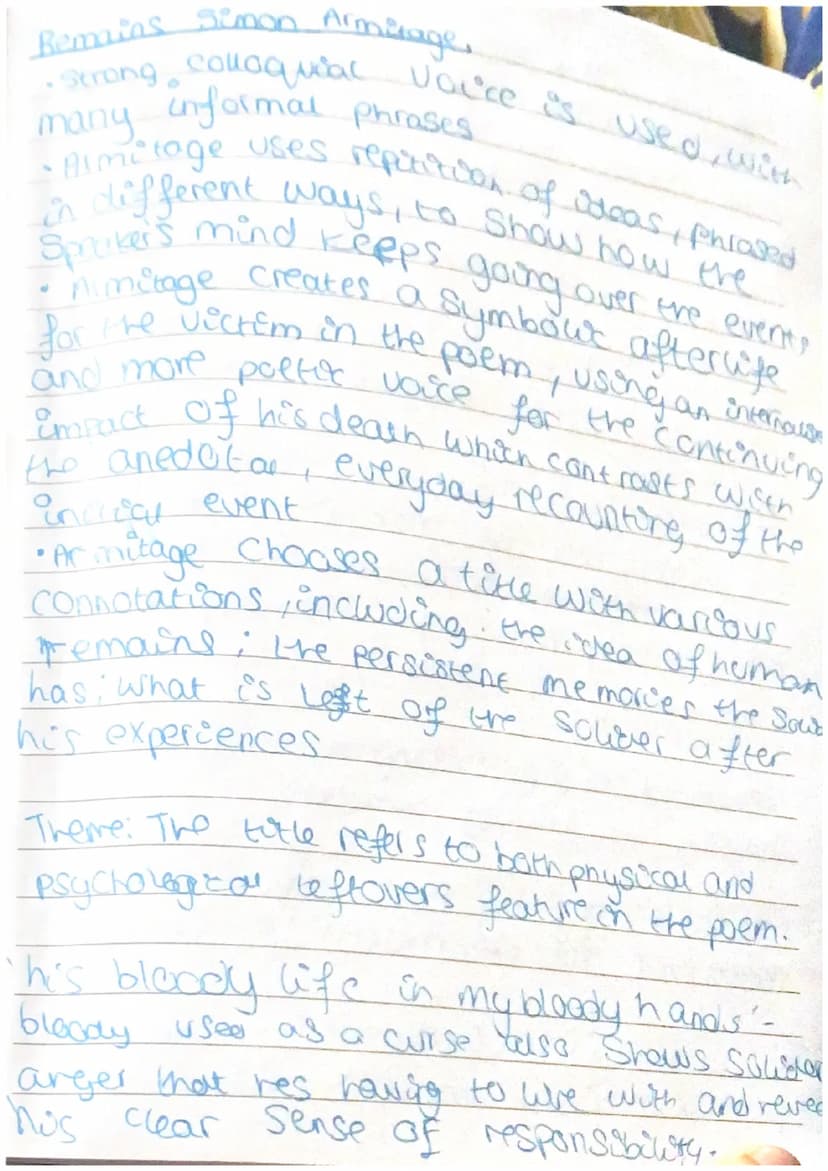 Remains Simon Armitage.
• Strong colloquial voice is used, with
many informal phrases
• Armitage uses repitition of ideas, phrased
in different ways, to show how the
speaker's mind keeps going over the events
• Armitage creates a symbolic afterlife
for the victim in the poem, using an
and more poetic voice for the continuing
impact of his death which contrasts with
the anedotal, everyday recounting of the
event
• Armitage chooses a title with various
connotations, including: the idea of human
remains; the persistent memories the
has; what is left of the soldier after
his experiences
Theme: The title refers to both physical and
psychological leftovers feature in the poem.
'his bloody life in my bloody hands' -
bloody used as a curse also shows
anger that hes having to live with and
his clear sense of responsibility.